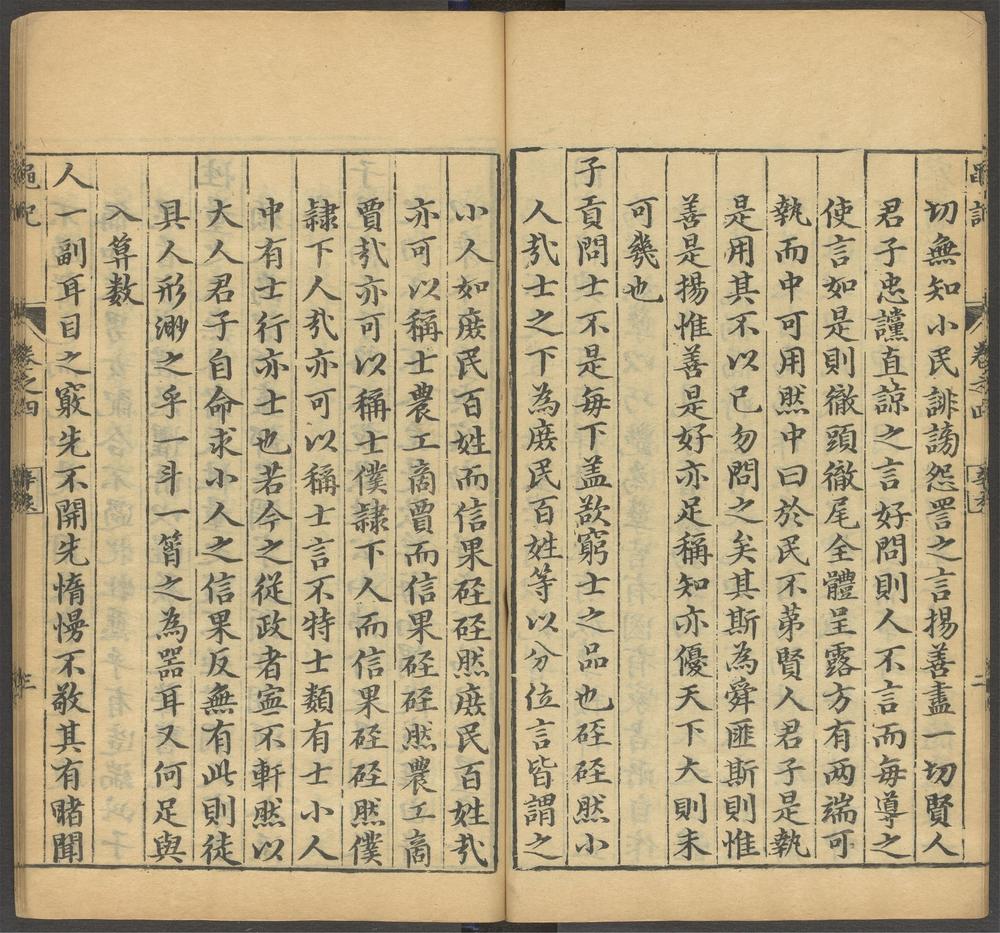 切無知小民誹謗怨詈之言揚善盡一切賢人
君子忠讜直諒之言好問則人不言而每導之
使言如是則徹頭徹尾全體呈露方有两端可
執而中可用然中曰於民不苐賢人君子是執
是用其不以已勿問之矣其斯為舜匪斯則惟
善是揚惟善是好亦足稱知亦優天下大則未
可幾也
子貢問士不是每下盖欲窮士之品也硜硜然小
人㢤士之下為庶民百姓等以分位言皆謂之
小人如庶民百姓而信果硜硜然庶民百姓㢤
亦可以稱士農工商賈而信果硜硜然農工商
賈㢤亦可以稱士僕隷下人而信果硜硜然僕
隷下人㢤亦可以稱士言不特士類有士小人
中有士行亦士也若今之從政者寍不軒然以
大人君子自命求小人之信果反無有此則徒
具人形渺之乎一斗一筲之為器耳又何足與
入算数
人一副耳目之竅先不開先惰慢不敬其有睹聞
卷之四
二
卷之四
三